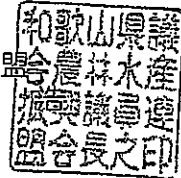 盟
和歌山県議
会農林水産
振興議員連
盟会長之印